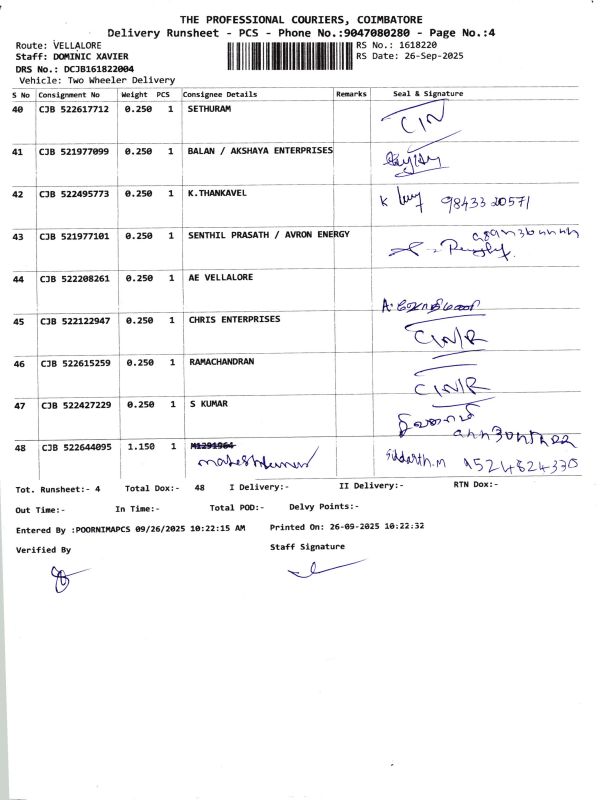 THE PROFESSIONAL COURIERS, COIMBATORE
Delivery Runsheet - PCS - Phone No.:9047080280 - Page No.:4
Route: VELLALORE RS No.: 1618220
Staff: DOMINIC XAVIER RS Date: 26-Sep-2025
DRS No.: DCJB161822004
Vehicle: Two Wheeler Delivery
S No Consignment No Weight PCS Consignee Details Remarks Seal & Signature
40 CJB 522617712 0.250 1 SETHURAM
41 CJB 521977099 0.250 1 BALAN / AKSHAYA ENTERPRISES
42 CJB 522495773 0.250 1 K.THANKAVEL K 98433 20571
43 CJB 521977101 0.250 1 SENTHIL PRASATH / AVRON ENERGY
44 CJB 522208261 0.250 1 AE VELLALORE
45 CJB 522122947 0.250 1 CHRIS ENTERPRISES C/N/R
46 CJB 522615259 0.250 1 RAMACHANDRAN C/N/R
47 CJB 522427229 0.250 1 S KUMAR
48 CJB 522644095 1.150 1 M1291964 Siddarth.M
Tot. Runsheet:- 4 Total Dox:- 48 I Delivery:- II Delivery:- RTN Dox:-
Out Time:- In Time:- Total POD:- Delvy Points:-
Entered By :POORNIMAPCS 09/26/2025 10:22:15 AM Printed On: 26-09-2025 10:22:32
Verified By Staff Signature